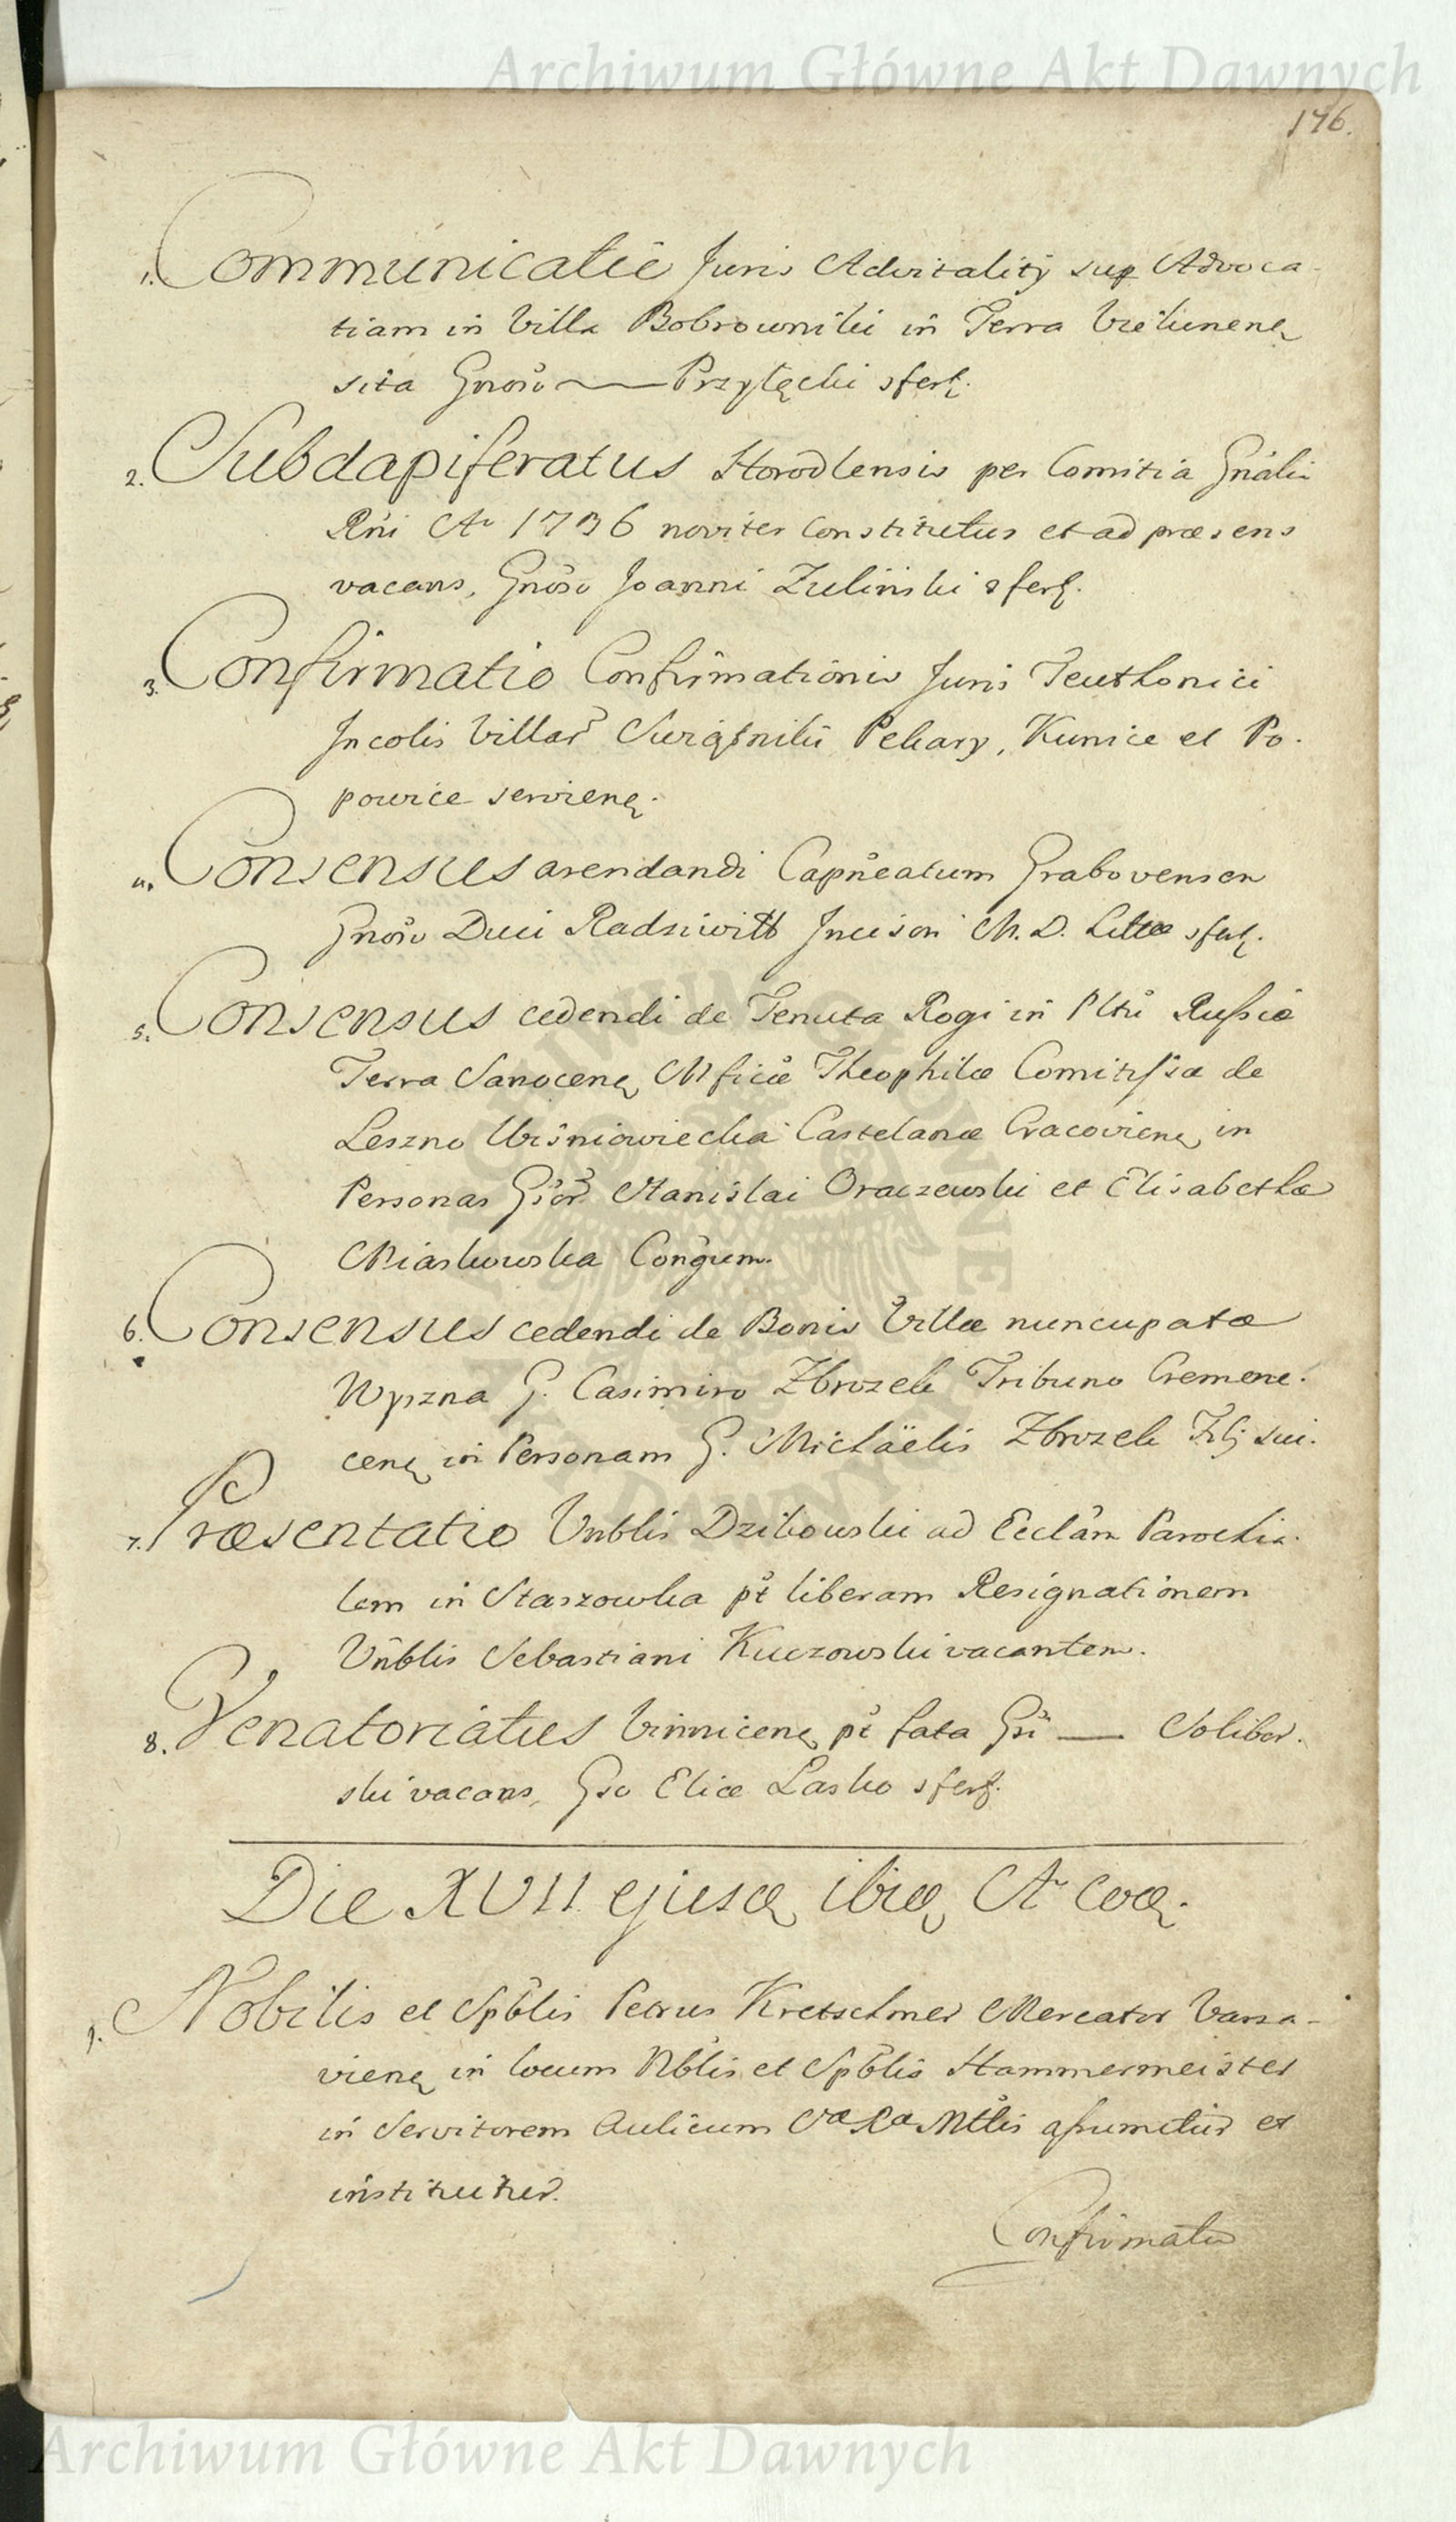 Archiwum Główne Akt Dawnych
176.
1. Communicatio Juris Advitalitÿ sup Advoca-
tiam in Villa Bobrowniki in Terra Vielunenę
sita Gnoso — Przyłęcki sferę.
2. Subdapiferatus Horodlensis per Comitia Gnalia
Rni Ao 1736 noviter Constitutus et ad præsens
vacans, Gnoso Joanni Zulinski sferę.
3. Confirmatio Confirmationis Juris Teuthonici
Incolis Villar Pekary, Kunice et Po-
powice servienę.
4. Consensus arendandi Capneatum Grabovensem
Gnoso Duci Radziwiłł Incisori M. D. Littæ sferę.
5. Consensus cedendi de Tenuta Rogi in Pltu Russiæ
Terra Sanocenę Mficæ Theophilæ Comitissæ de
Leszno Wisniowiecka Castelanæ Cracovienę in
Personas Gsor Stanislai Oraczewski et Elisabethæ
Miaskowska Congum.
6. Consensus cedendi de Bonis Villæ nuncupatæ
Wyzna G. Casimiro Zbrozek Tribuno Cremene-
cenę in Personam G. Michäelis Zbrozek Filj sui.
7. Præsentatio Vnblis Dzikowski ad Ecclam Parochia-
lem in Staszowka pt liberam Resignationem
Vnblis Sebastiani Kuczowski vacantem.
8. Venatoriatus Vinnicenę pt fata Gsi — Solibor-
ski vacans, Gso Eliæ Lasko sferę.
Die XVII ejusdę ibidę Ao eodę.
1. Nobilis et Spblis Petrus Kretschmer Mercator Varsa-
vienę in locum Nblis et Spblis Hammermeister
in Servitorem Aulicum Sæ Ræ Mttis assumitur et
instituitur.
Confirmatio
ARCHIWUM GŁÓWNE AKT DAWNYCH
Archiwum Główne Akt Dawnych